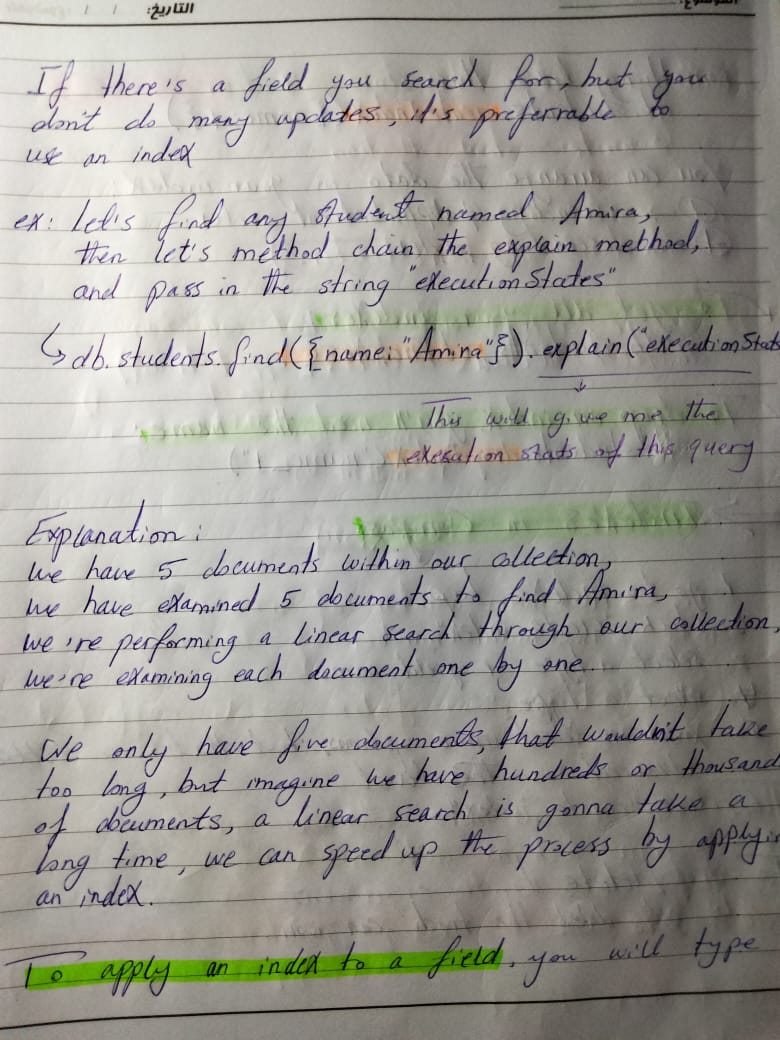 التاريخ: / /
الموضوع:
If there's a field you search for, but you
don't do many updates, it's preferrable to
use an index
ex: let's find any student named Amira,
then let's method chain the explain method,
and pass in the string "executionStates"
↳ db.students.find({name: "Amira"}).explain("executionStats
↓
This will give me the
execution stats of this query
Explanation:
we have 5 documents within our collection,
we have examined 5 documents to find Amira,
we're performing a linear search through our collection,
we're examining each document one by one.
We only have five documents, that wouldn't take
too long, but imagine we have hundreds or thousand
of documents, a linear search is gonna take a
long time, we can speed up the process by applyin
an index.
To apply an index to a field, you will type